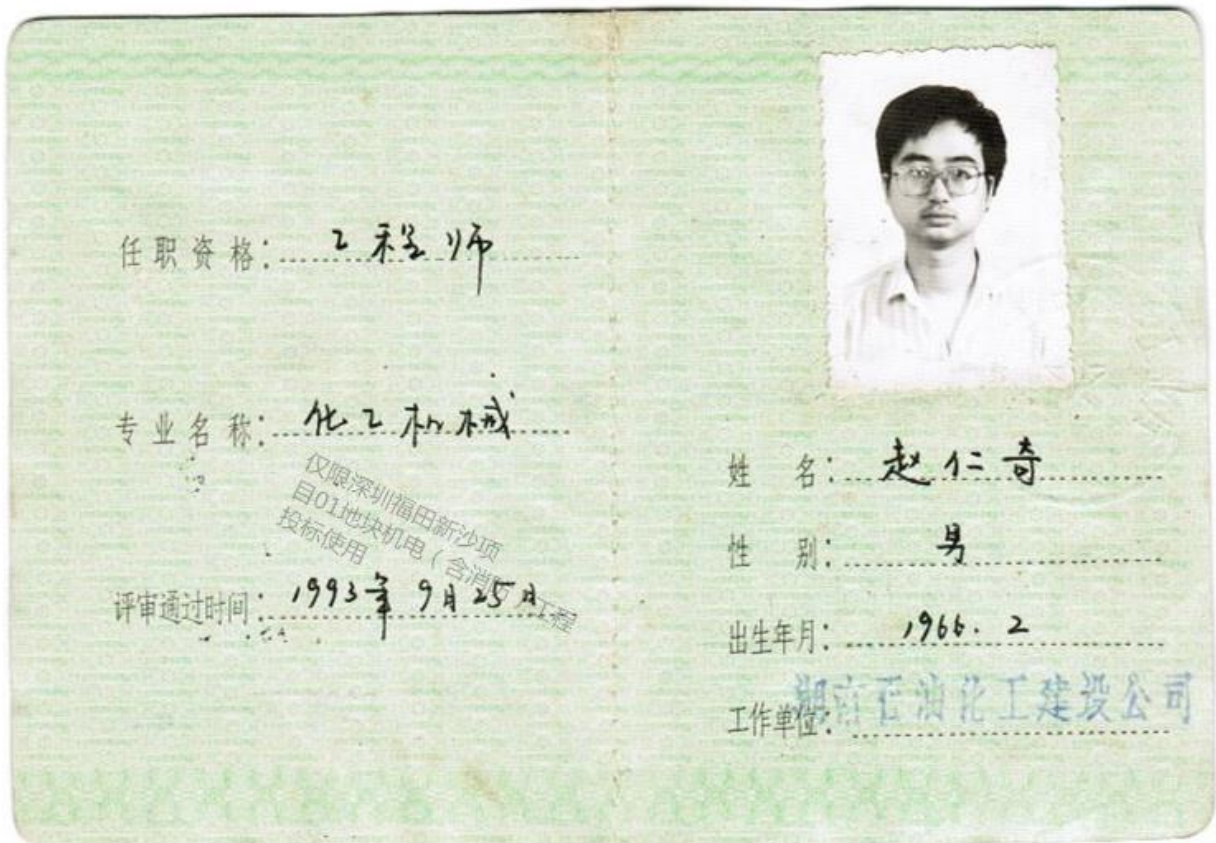 任职资格：工程师
专业名称：化工机械
仅限深圳福田新沙项
目01地块机电（含消
工程
投标使用
评审通过时间：1993年9月25日
姓名：赵仁奇
性别：男
出生年月：1966.2
工作单位：湖南石油化工建设公司